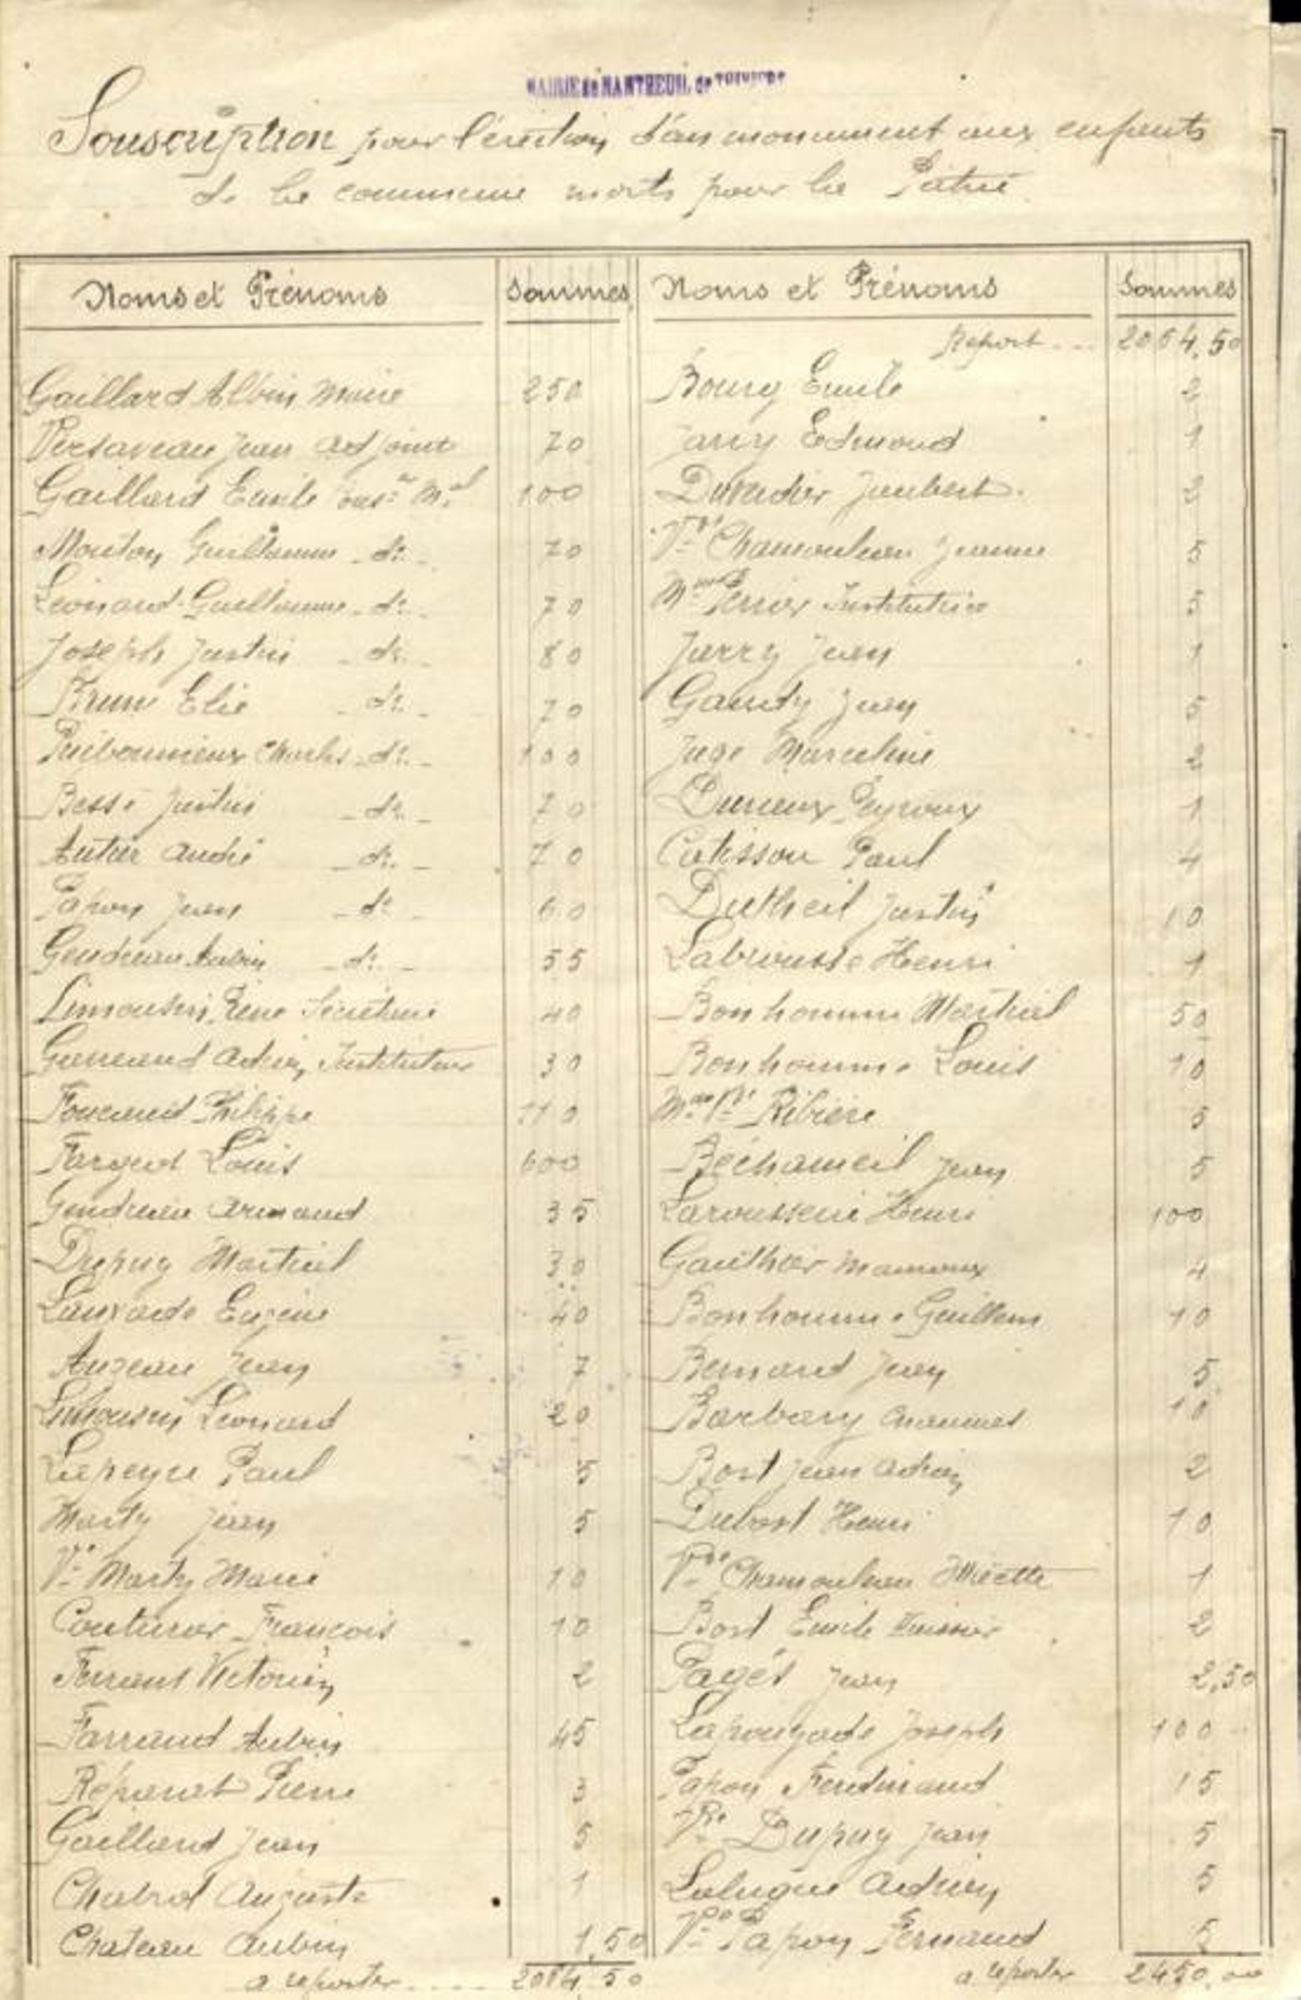 MAIRIE de NANTHEUIL de THIVIERS
Souscription pour l'érection d'un monument aux enfants
de la commune morts pour la Patrie
Noms et Prénoms Sommes
Gaillard Albin Maire 250
Versaveau Jean Adjoint 70
Gaillard Emile Cons.er M.al 100
Mouton Guillaume - do - 70
Léonard Guillaume - do - 70
Joseph Justin - do - 80
Brun Elie - do - 70
Puibonnieux Charles - do - 100
Besse Justin - do - 70
Autier André - do - 70
Papon Jean - do - 60
Gendreau Aubin - do - 55
Limousin René Secrétaire 40
Adrien Instituteur 30
Philippe 110
Fargeot Louis 600
Gendreau Armand 35
Dupuy Martial 30
Lauvade Eugène 40
Auzeau Jean 7
Limousin Léonard 20
Lapeyre Paul 5
Marty Jean 5
Vve Marty Marie 10
Couturier François 10
Ferrant Victorien 2
Farraud Aubin 45
Réparat Pierre 3
Gaillard Jean 5
Chabrol Auguste 1
Chateau Aubin 1,50
a reporter ..... 2084,50
Noms et Prénoms Sommes
Report .... 2084,50
Bourg Emile 2
Jarry Edmond 1
Duverdier Jaubert 2
Vve Chamouleau Jeanne 5
Mme Perrier Institutrice 5
Jarry Jean 1
Jean 5
Juge Marceline 2
Durieux Peyroux 1
Catisson Paul 4
Dutheil Justin 10
Labrousse Henri 1
Bonhomme Martial 50
Bonhomme Louis 10
Mme Vve Ribière 5
Béchameil Jean 5
Laroussarie Henri 100
Gauthier Mamoux 4
Bonhomme Guillem 10
Bernard Jean 5
Barbary 10
Bost Jean Adrien 2
Dubost Henri 10
Vve Chamouleau 1
Bost Emile Huissier 2
Pagès Jean 2,50
Lapouyade Joseph 100
Papon Ferdinand 15
Vve Dupuy Jean 5
Lalugue Adrien 5
Vve Papon Fernand 5
a reporter 2450,00